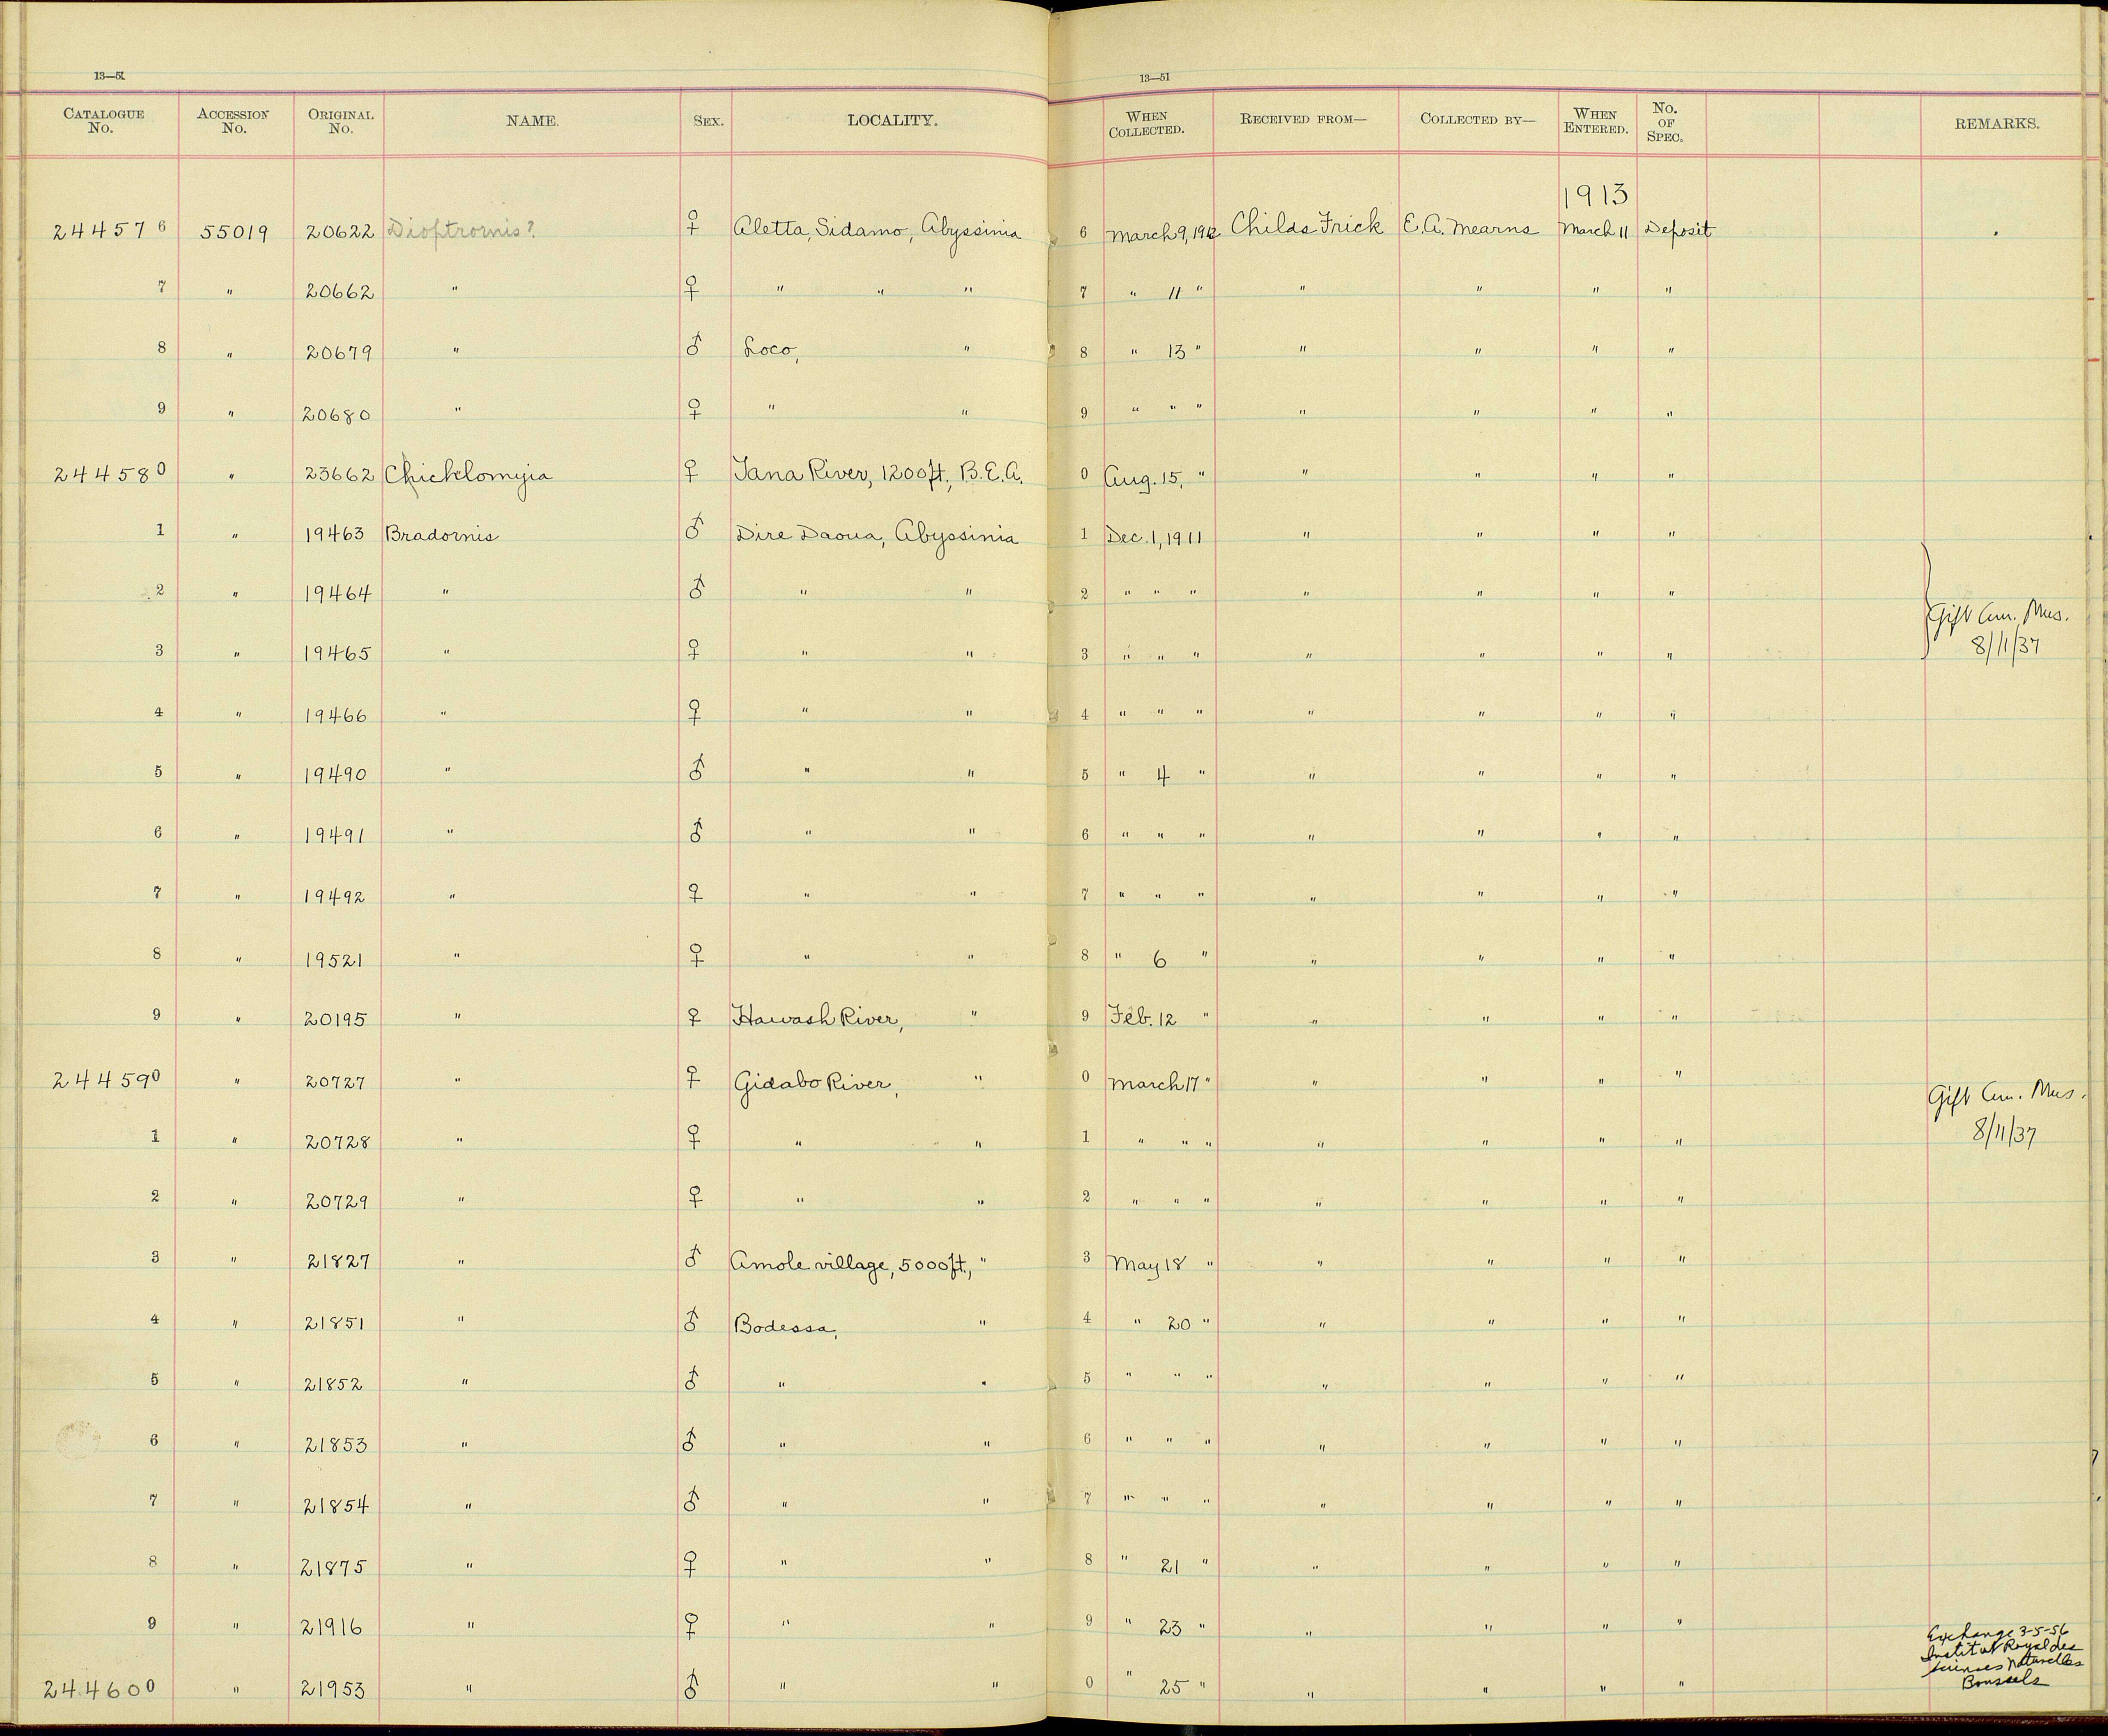 13—51
13—51
CATALOGUE No. ACCESSION No. ORIGINAL No. NAME. SEX. LOCALITY. WHEN COLLECTED. RECEIVED FROM— COLLECTED BY— WHEN ENTERED. No. OF SPEC. REMARKS.
1913
244576 55019 20622 Dioptrornis? ♀ Aletta, Sidamo, Abyssinia 6 March 9, 1912 Childs Frick E.A. Mearns March 11 Deposit
7 " 20662 " ♀ " " " 7 " 11 " " " " "
8 " 20679 " ♂ Loco, " 8 " 13 " " " " "
9 " 20680 " ♀ " " 9 " " " " " " "
244580 " 23662 Chichlomyia ♀ Tana River, 1200 ft., B.E.A. 0 Aug. 15, " " " " "
1 " 19463 Bradornis ♂ Dire Daoua, Abyssinia 1 Dec. 1, 1911 " " " "
2 " 19464 " ♂ " " 2 " " " " " " "
Gift Am. Mus.
3 " 19465 " ♀ " " 3 " " " " " " " 8/11/37
4 " 19466 " ♀ " " 4 " " " " " " "
5 " 19490 " ♂ " " 5 " 4 " " " " "
6 " 19491 " ♂ " " 6 " " " " " " "
7 " 19492 " ♀ " " 7 " " " " " " "
8 " 19521 " ♀ " " 8 " 6 " " " " "
9 " 20195 " ♀ Hawash River, " 9 Feb. 12 " " " " "
244590 " 20727 " ♀ Gidabo River, " 0 March 17 " " " " " Gift Am. Mus.
1 " 20728 " ♀ " " 1 " " " " " " " 8/11/37
2 " 20729 " ♀ " " 2 " " " " " " "
3 " 21827 " ♂ Amole village, 5000 ft., " 3 May 18 " " " " "
4 " 21851 " ♂ Bodessa, " 4 " 20 " " " " "
5 " 21852 " ♂ " " 5 " " " " " " "
6 " 21853 " ♂ " " 6 " " " " " " "
7 " 21854 " ♂ " " 7 " " " " " " "
8 " 21875 " ♀ " " 8 " 21 " " " " "
9 " 21916 " ♀ " " 9 " 23 " " " " "
Exchange 3-5-56
Institut Royal des
Sciences Naturelles
Brussels
244600 " 21953 " ♂ " " 0 " 25 " " " " "